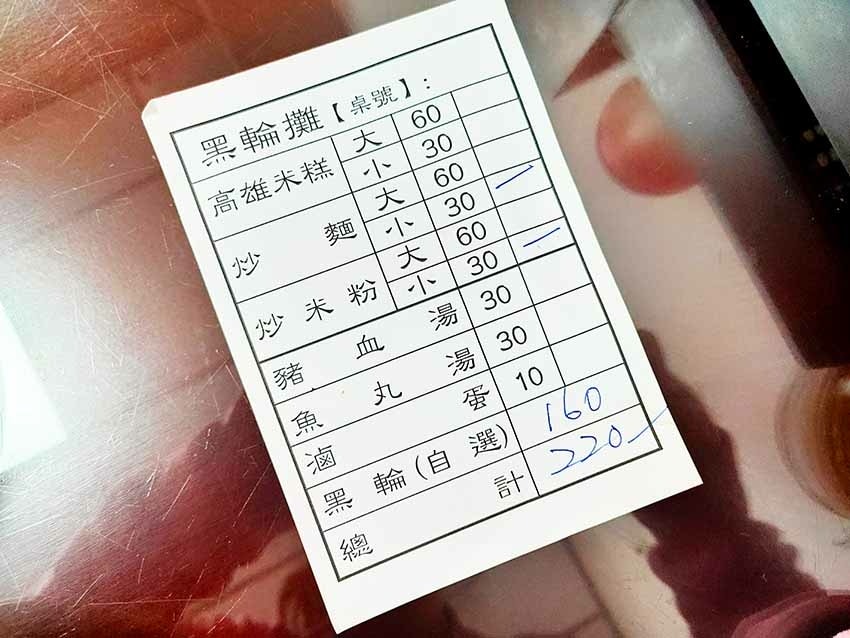 黑輪攤【桌號】:
高雄米糕 大 60
小 30
炒麵 大 60
小 30
炒米粉 大 60
小 30
豬血湯 30
魚丸湯 30
滷蛋 10
黑輪(自選) 160
總計 220